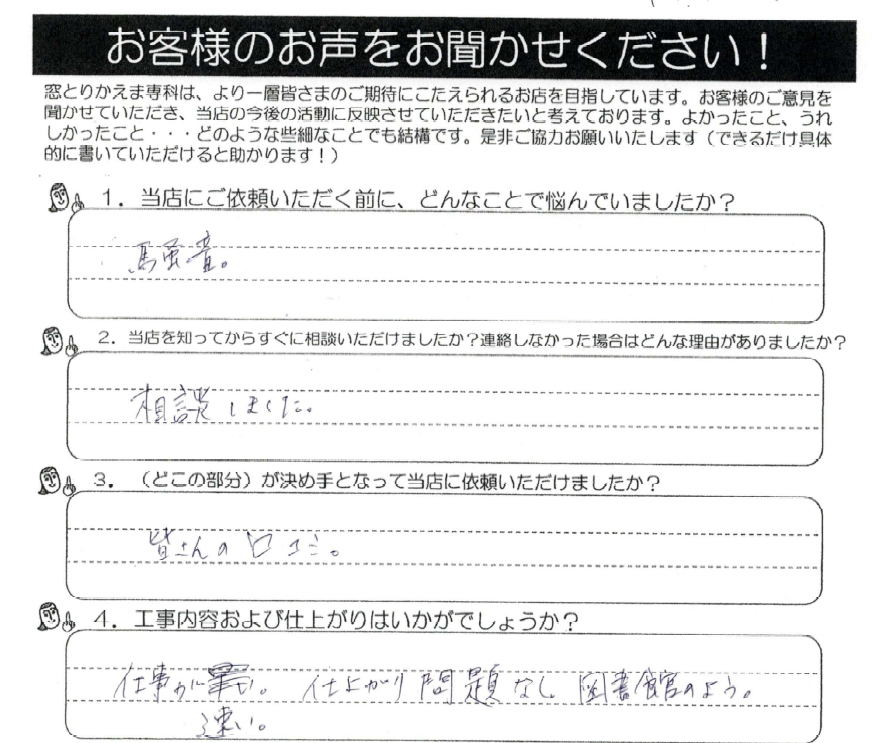 お客様のお声をお聞かせください！
窓とりかえま専科は、より一層皆さまのご期待にこたえられるお店を目指しています。お客様のご意見を
聞かせていただき、当店の今後の活動に反映させていただきたいと考えております。よかったこと、うれ
しかったこと・・・どのような些細なことでも結構です。是非ご協力お願いいたします（できるだけ具体
的に書いていただけると助かります！）
1．当店にご依頼いただく前に、どんなことで悩んでいましたか？
馬蚤音。
2．当店を知ってからすぐに相談いただけましたか？連絡しなかった場合はどんな理由がありましたか？
相談しました。
3．（どこの部分）が決め手となって当店に依頼いただけましたか？
皆さんの口コミ。
4．工事内容および仕上がりはいかがでしょうか？
仕事が 。仕上がり問題なし 図書館のよう。
速い。